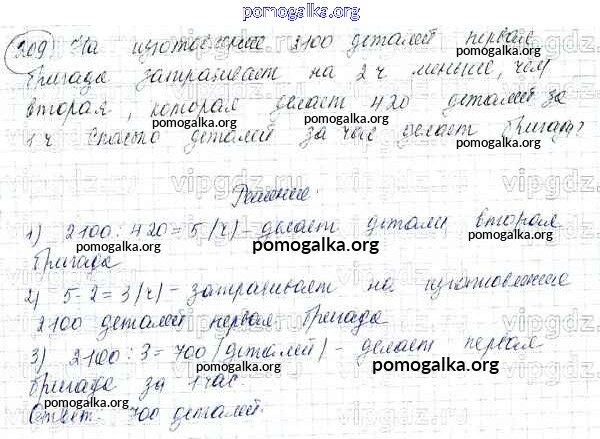 pomogalka.org
209) На изготовление 2100 деталей первая
бригада затрачивает на 2 ч меньше, чем
вторая, которая делает 420 деталей за
1 ч Сколько деталей за час делает бригада?
pomogalka.org
Решение.
1) 2100 : 420 = 5 (ч) - делает детали вторая
бригада
pomogalka.org
2) 5 - 2 = 3 (ч) - затрачивает на изготовление
2100 деталей первая бригада
pomogalka.org
3) 2100 : 3 = 700 (деталей) - делает первая
бригада за 1 час
pomogalka.org
Ответ: 700 деталей.